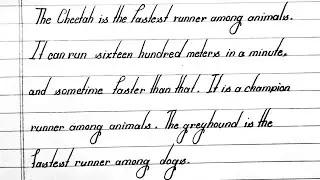 The Cheetah is the fastest runner among animals.
It can run sixteen hundred meters in a minute,
and sometime faster than that. It is a champion
runner among animals. The greyhound is the
fastest runner among dogs.